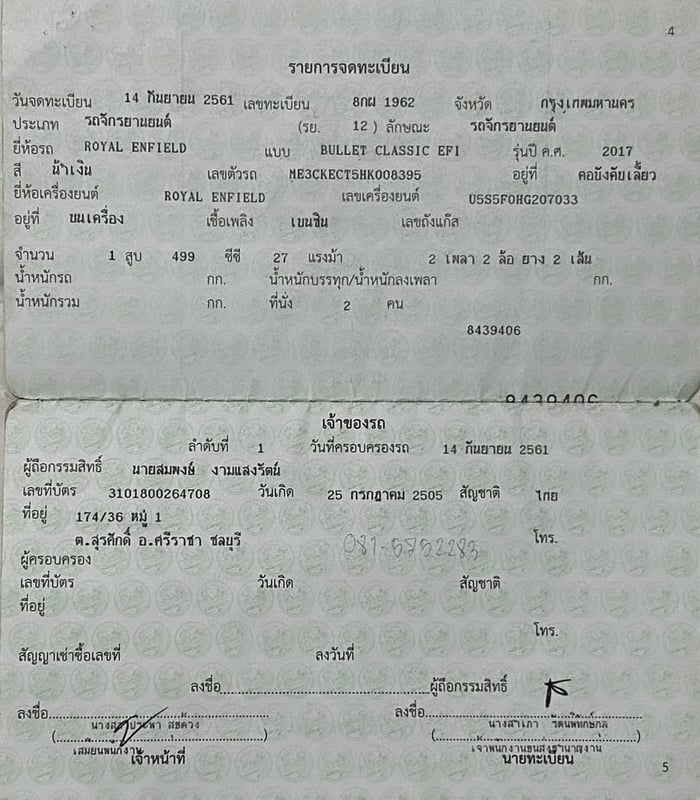 4
รายการจดทะเบียน
วันจดทะเบียน 14 กันยายน 2561 เลขทะเบียน 8กผ 1962 จังหวัด กรุงเทพมหานคร
ประเภท รถจักรยานยนต์ (รย. 12 ) ลักษณะ รถจักรยานยนต์
ยี่ห้อรถ ROYAL ENFIELD แบบ BULLET CLASSIC EFI รุ่นปี ค.ศ. 2017
สี น้ำเงิน เลขตัวรถ ME3CKECT5HK008395 อยู่ที่ คอบังคับเลี้ยว
ยี่ห้อเครื่องยนต์ ROYAL ENFIELD เลขเครื่องยนต์ U5S5F0HG207033
อยู่ที่ บนเครื่อง เชื้อเพลิง เบนซิน เลขถังแก๊ส
จำนวน 1 สูบ 499 ซีซี 27 แรงม้า 2 เพลา 2 ล้อ ยาง 2 เส้น
น้ำหนักรถ กก. น้ำหนักบรรทุก/น้ำหนักลงเพลา กก.
น้ำหนักรวม กก. ที่นั่ง 2 คน
8439406
8439406
เจ้าของรถ
ลำดับที่ 1 วันที่ครอบครองรถ 14 กันยายน 2561
ผู้ถือกรรมสิทธิ์ นายสมพงษ์ งามแสงรัตน์
เลขที่บัตร 3101800264708 วันเกิด 25 กรกฎาคม 2505 สัญชาติ ไทย
ที่อยู่ 174/36 หมู่ 1
ต.สุรศักดิ์ อ.ศรีราชา ชลบุรี 081-5752283 โทร.
ผู้ครอบครอง
เลขที่บัตร วันเกิด สัญชาติ
ที่อยู่
โทร.
สัญญาเช่าซื้อเลขที่ ลงวันที่
ลงชื่อ ผู้ถือกรรมสิทธิ์
ลงชื่อ ลงชื่อ
เจ้าหน้าที่ นายทะเบียน
5